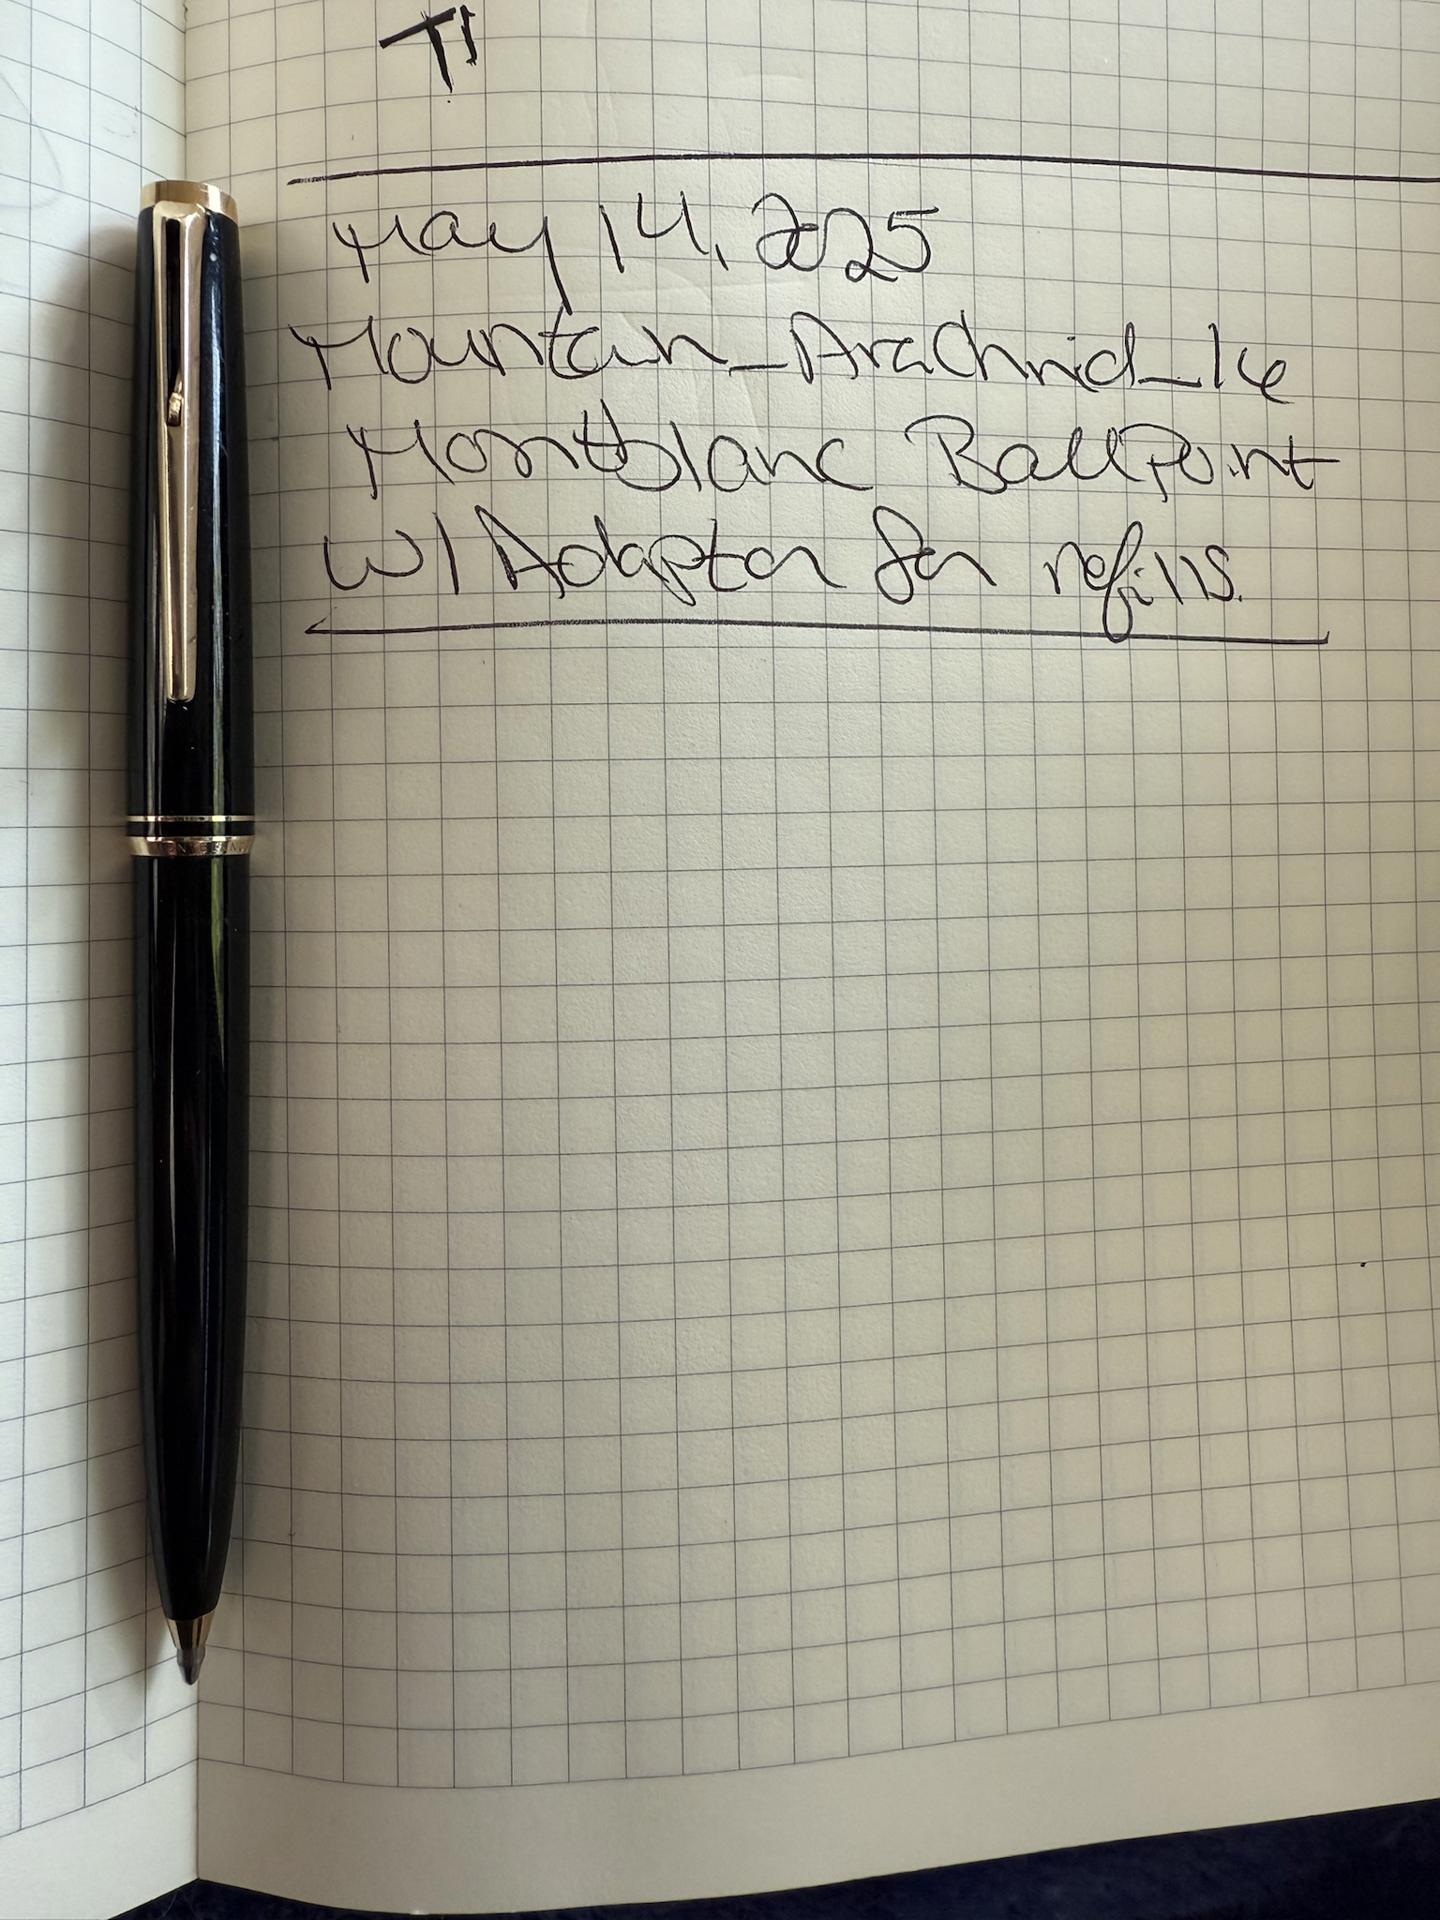 May 14, 2025
Mountain_Arachnid_16
Montblanc BallPoint
W/ Adapter for refills.